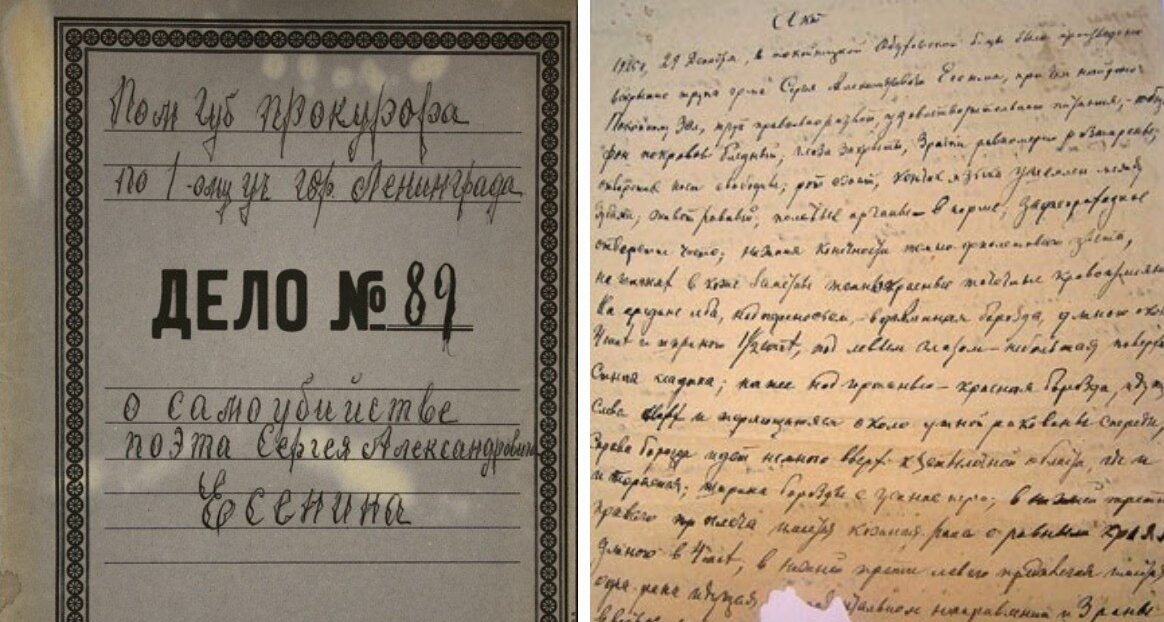 Пом Губ прокурора
по 1-ому уч гор. Ленинграда
ДЕЛО № 89
о самоубийстве
поэта Сергея Александровича
Есенина
Акт
1925г, 29 Декабря, в покойницкой Обуховской б-цы было произведено
вскрытие трупа гр-на Сергея Александровича Есенина, при чем найдено:
Покойному 30л, труп правильно развит, удовлетворительного питания,
фон покровов бледный, глаза закрыты, зрачки равномерно расширены;
отверстия носа свободны; рот сжат, кончик языка ущемлен между
зубами; живот ровный; половые органы в норме; заднепроходное
отверстие чисто; нижние конечности темно-фиолетового цвета,
на голенях в коже заметны темнокрасные точечные кровоизлияния
На средине лба, над переносьем, вдавленная борозда, длиною око
4 сант и шириною 1½ сант, под левым глазом небольшая поверх
ссадина; над гортанью красная борозда, идущ
слева вверх и теряющаяся около ушной раковины спереди,
справа борозда идет немного вверх к затылочной области, где и
и теряется; ширина борозды с гусиное перо; в нижней трети
правого плеча имеется кожная рана с ровными краям
длиною в 4 сант, в нижней трети левого предплечья имеется
одна рана идущая в горизонтальном направлении и 3 раны